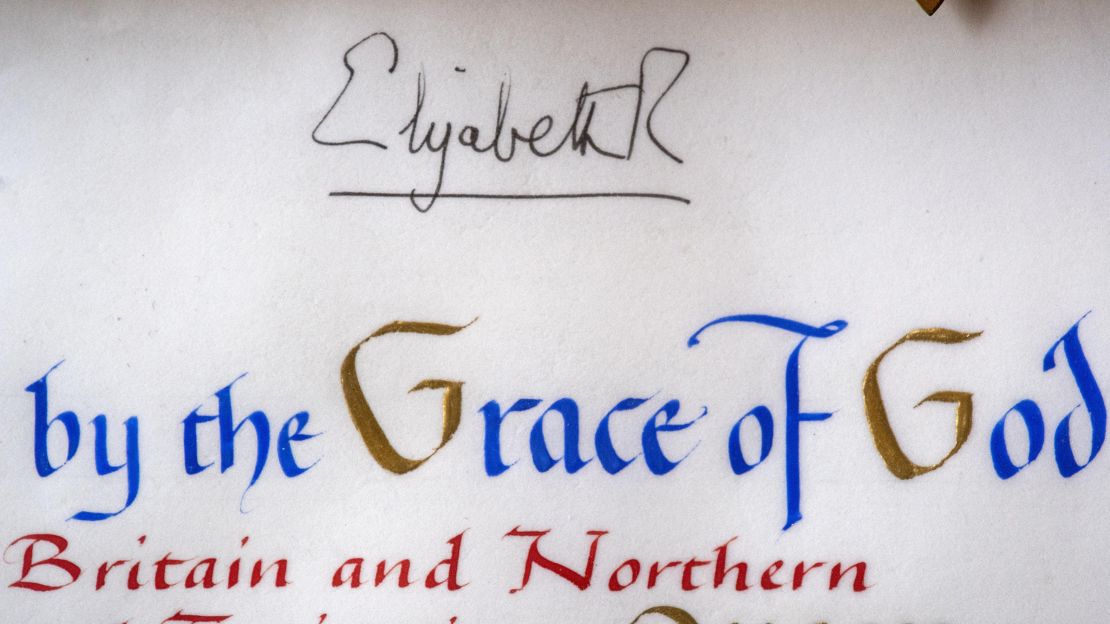 Elizabeth R
by the Grace of God
Britain and Northern